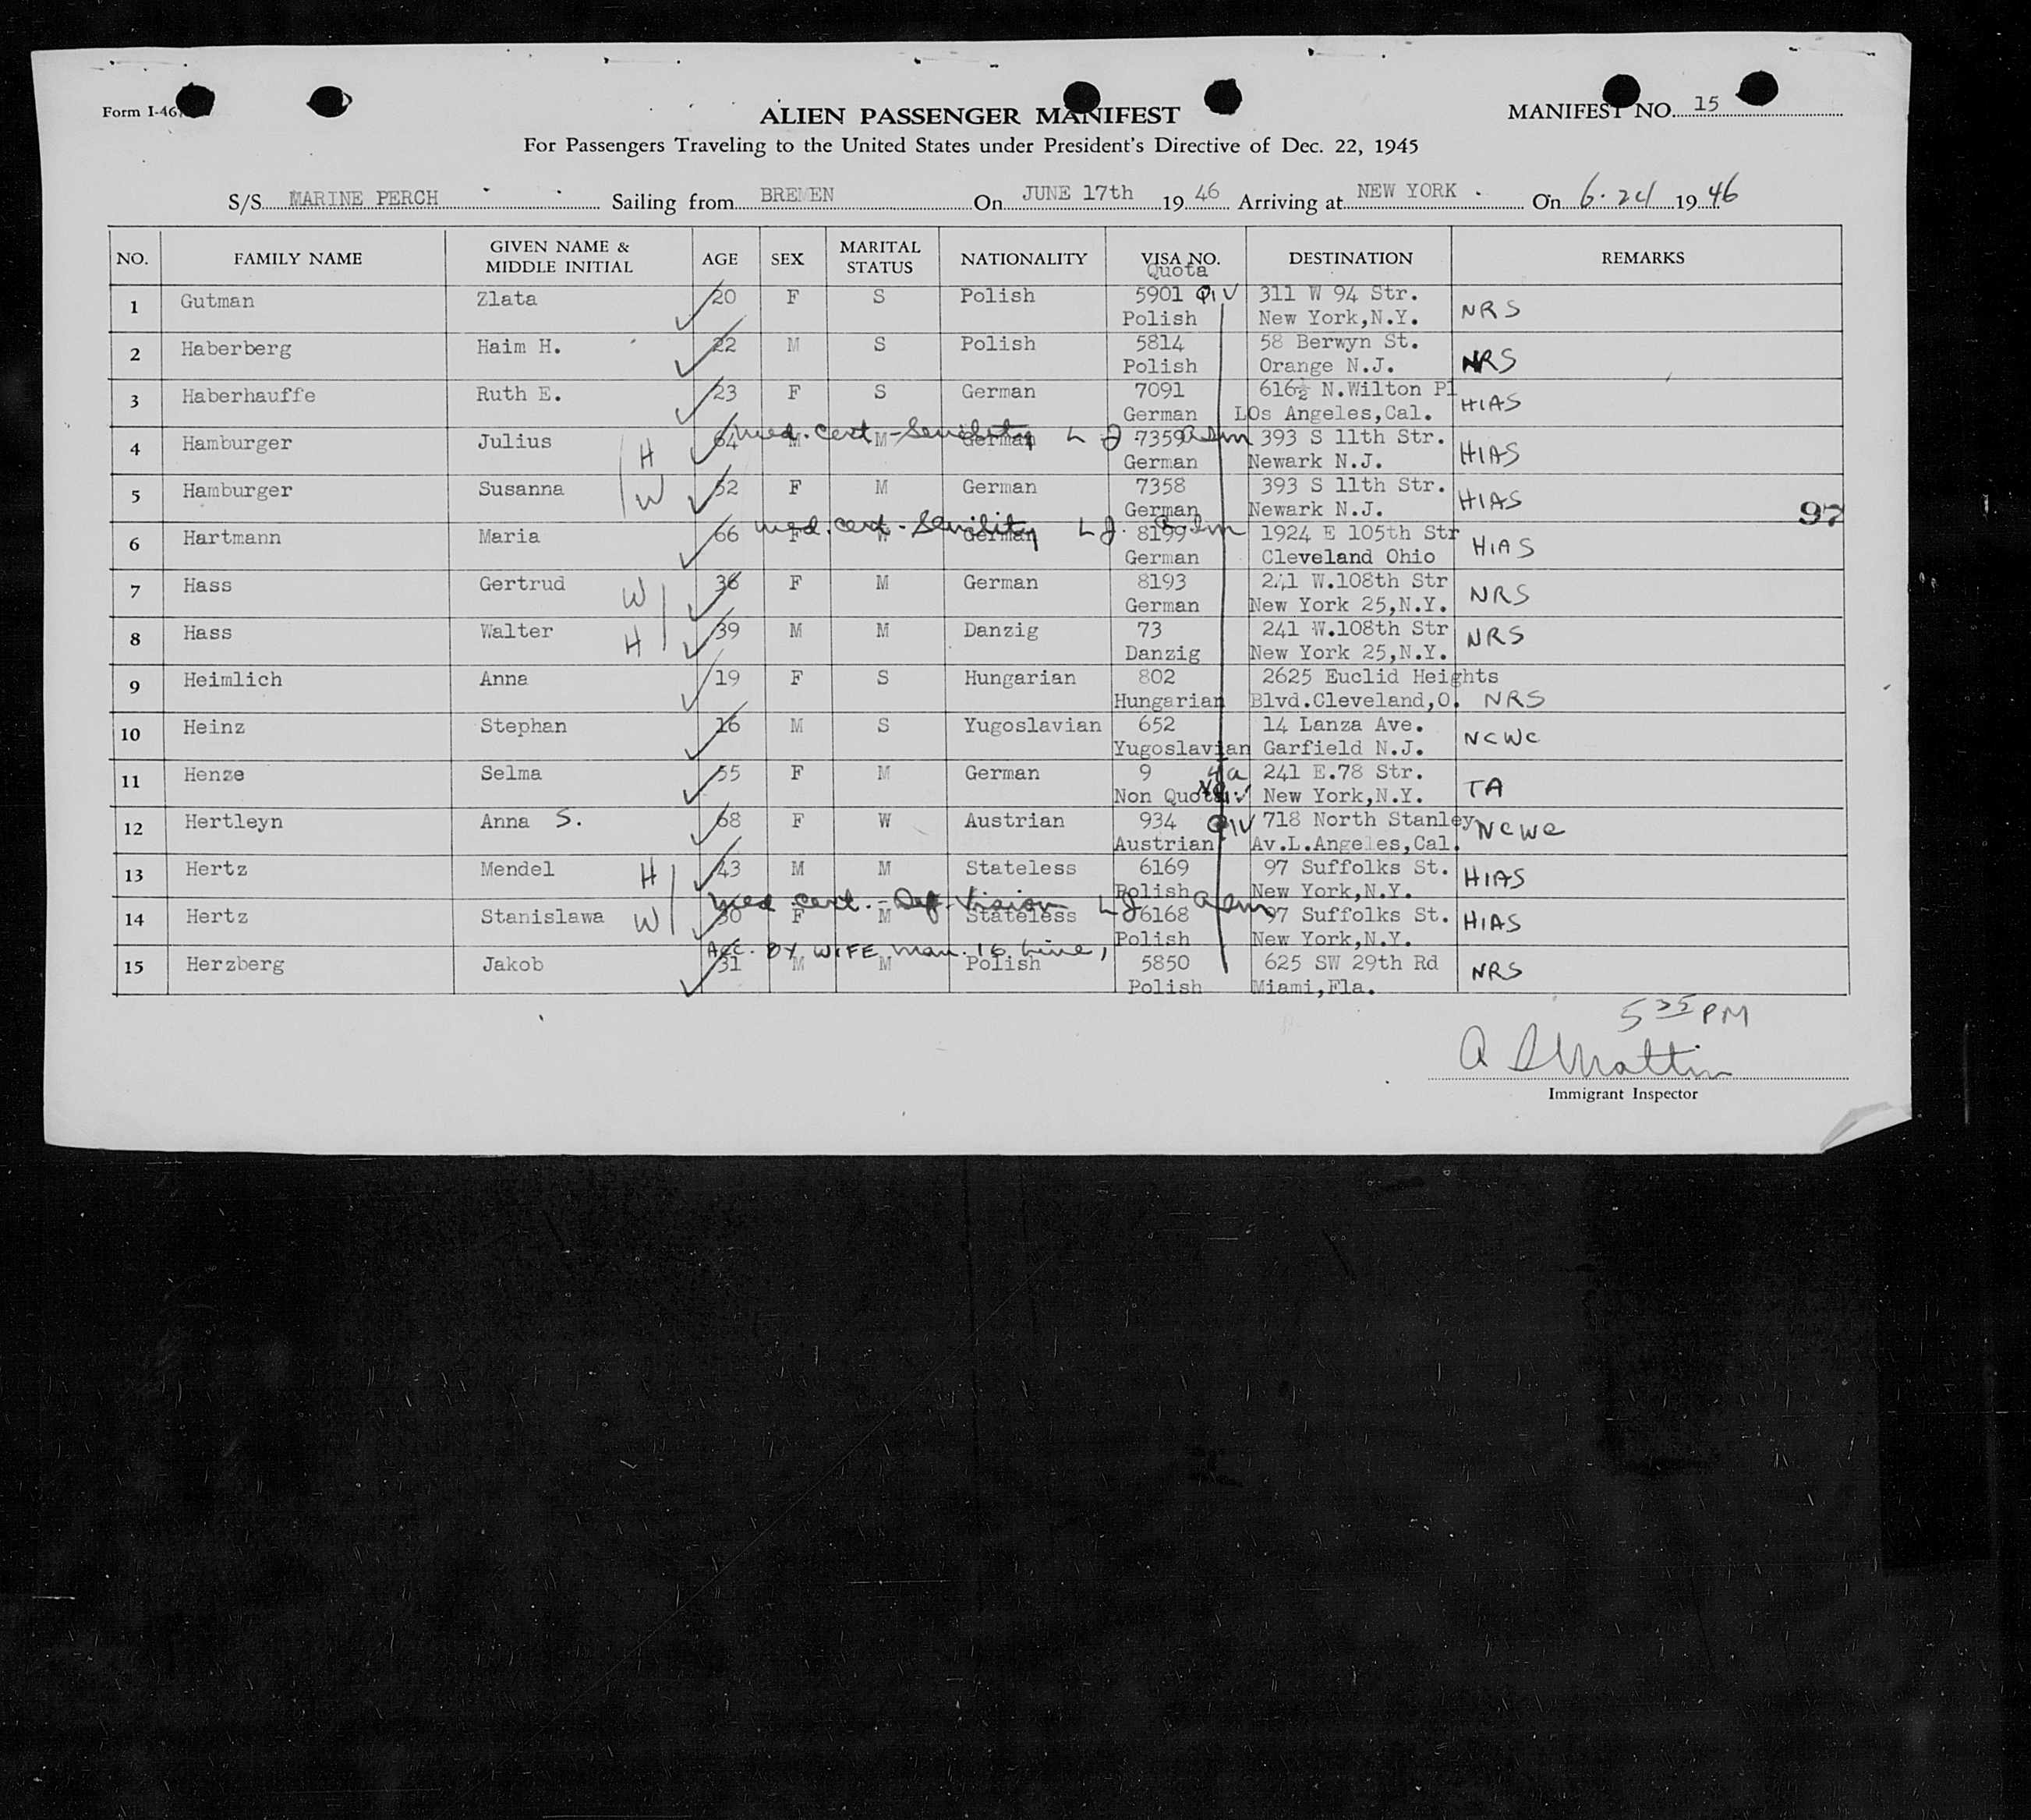 Form I-46
ALIEN PASSENGER MANIFEST
MANIFEST NO. 15
For Passengers Traveling to the United States under President's Directive of Dec. 22, 1945
S/S MARINE PERCH Sailing from BREMEN On JUNE 17th 19 46 Arriving at NEW YORK . On 6.24 19 46
NO. FAMILY NAME GIVEN NAME & MIDDLE INITIAL AGE SEX MARITAL STATUS NATIONALITY VISA NO. Quota DESTINATION REMARKS
1 Gutman Zlata 20 F S Polish 5901 QIV 311 W 94 Str. NRS
Polish New York,N.Y.
2 Haberberg Haim H. 22 M S Polish 5814 58 Berwyn St. NRS
Polish Orange N.J.
3 Haberhauffe Ruth E. 23 F S German 7091 616½ N.Wilton Pl HIAS
German LOs Angeles,Cal.
med. cert - Senility L J
4 Hamburger Julius H 64 M M German 7359 393 S 11th Str. HIAS
German Newark N.J.
5 Hamburger Susanna W 52 F M German 7358 393 S 11th Str. HIAS
German Newark N.J.
97
med. cert - Senility L J.
6 Hartmann Maria 66 F W German 8199 1924 E 105th Str HIAS
German Cleveland Ohio
7 Hass Gertrud W 36 F M German 8193 241 W.108th Str NRS
German New York 25,N.Y.
8 Hass Walter H 39 M M Danzig 73 241 W.108th Str NRS
Danzig New York 25,N.Y.
9 Heimlich Anna 19 F S Hungarian 802 2625 Euclid Heights
Hungarian Blvd.Cleveland,O. NRS
10 Heinz Stephan 16 M S Yugoslavian 652 14 Lanza Ave. NCWC
Yugoslavian Garfield N.J.
11 Henze Selma 55 F M German 9 4a 241 E.78 Str. TA
Non Quota New York,N.Y.
12 Hertleyn Anna S. 68 F W Austrian 934 QIV 718 North Stanley NCWC
Austrian Av.L.Angeles,Cal.
13 Hertz Mendel H 43 M M Stateless 6169 97 Suffolks St. HIAS
Polish New York,N.Y.
med cert. - Def. Vision L J
14 Hertz Stanislawa W 30 F M Stateless 6168 97 Suffolks St. HIAS
Polish New York,N.Y.
Acc. BY WIFE man. 16 Line 1
15 Herzberg Jakob 31 M M Polish 5850 625 SW 29th Rd NRS
Polish Miami,Fla.
5 35 PM
Immigrant Inspector